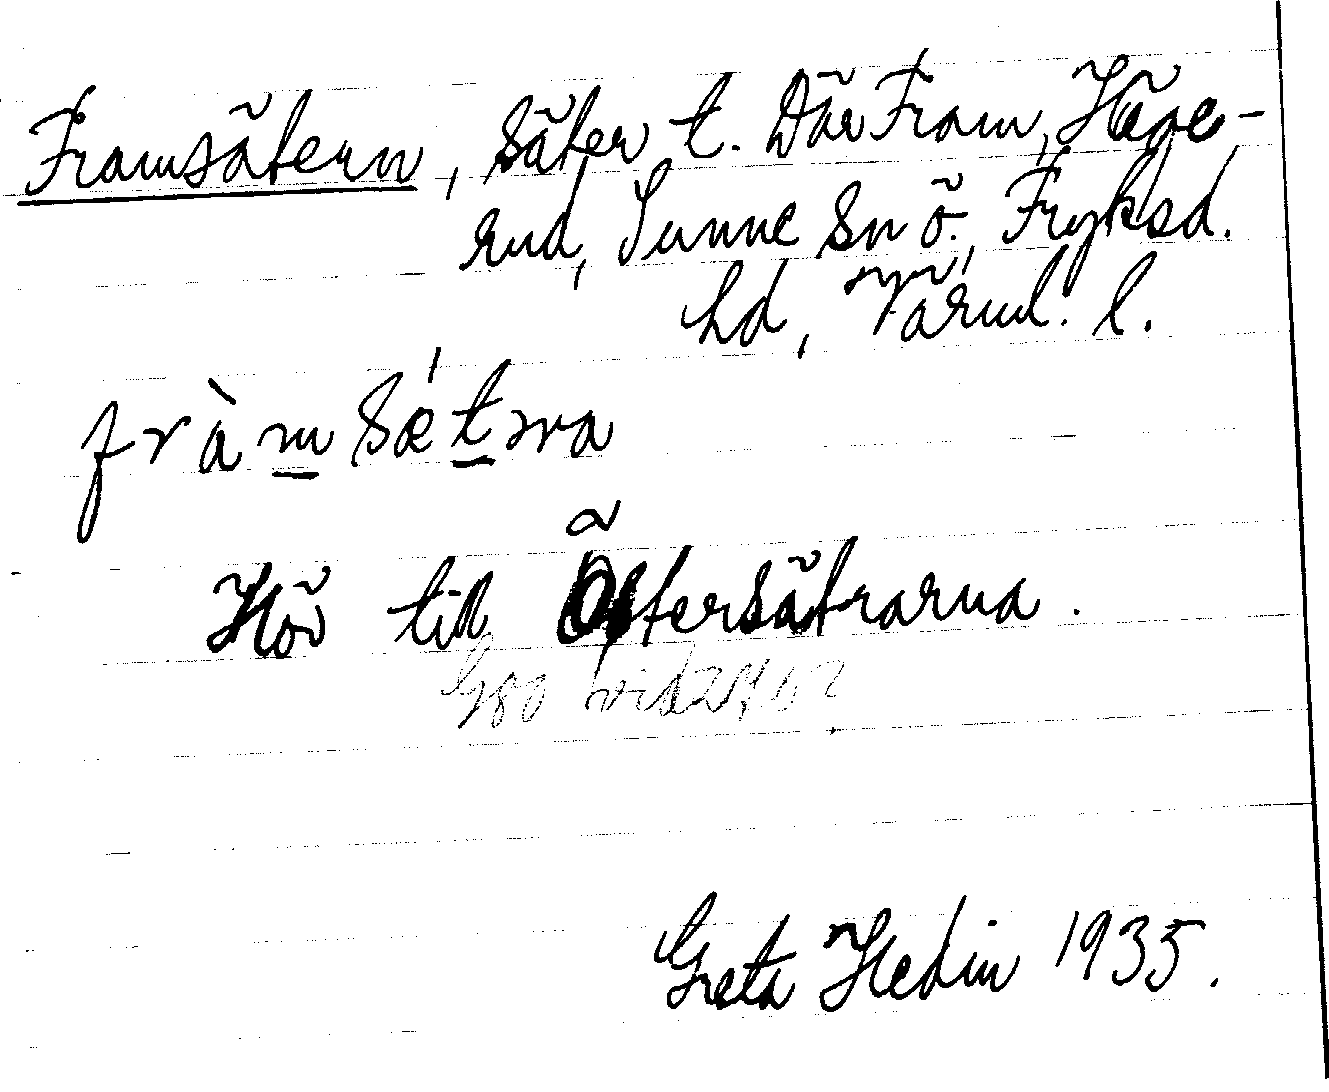 Framsätern, säter t. Där Fram, Häge-
rud, Sunne sn ö., Fryksd.
hd, Värml. l.
fràmsǽtra
Hör till Östersätrarna.
Greta Hedin 1935.